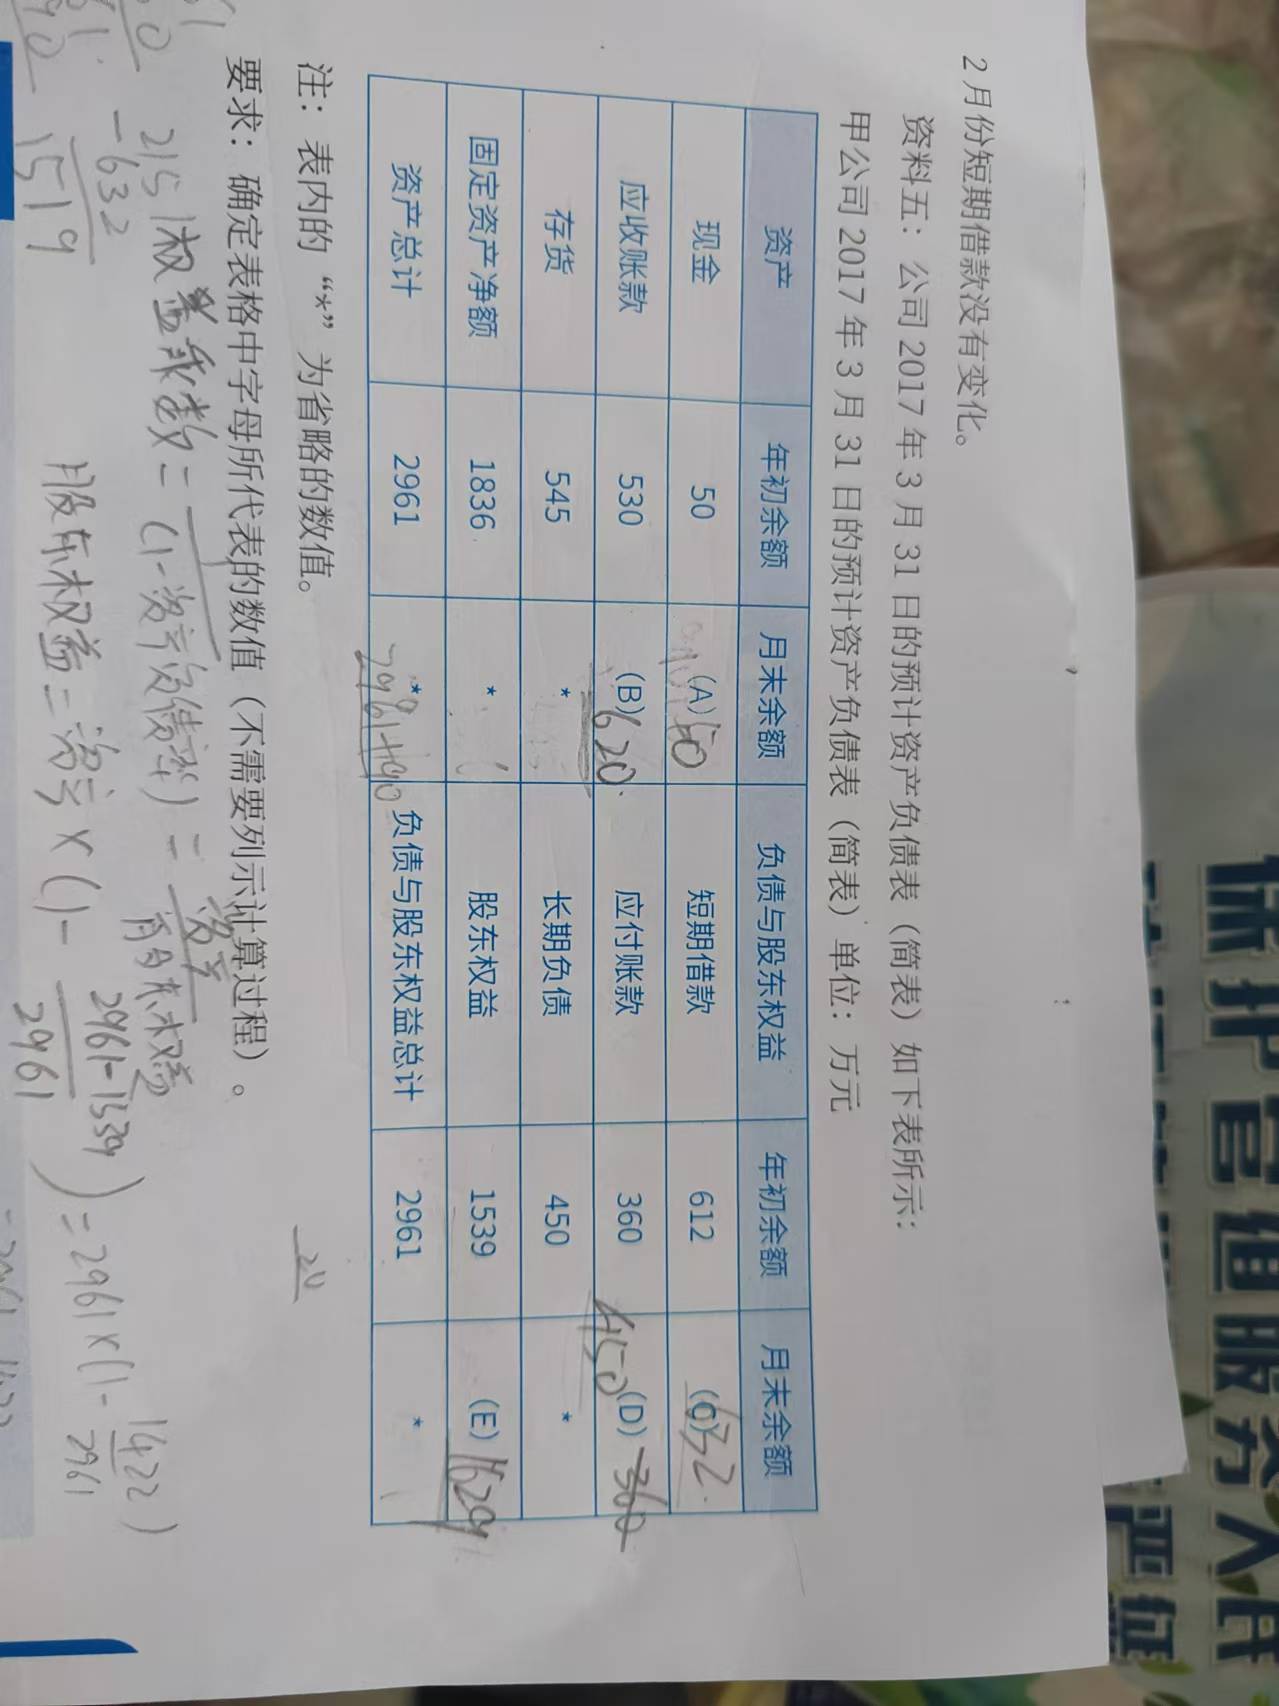 2月份短期借款没有变化。
资料五：公司2017年3月31日的预计资产负债表（简表）如下表所示：
甲公司2017年3月31日的预计资产负债表（简表）单位：万元
资产 年初余额 月末余额 负债与股东权益 年初余额 月末余额
现金 50 (A) 50 短期借款 612 (C) 632
应收账款 530 (B) 620 应付账款 360 (D) 360 450
存货 545 * 长期负债 450 *
固定资产净额 1836 * 股东权益 1539 (E) 1629
资产总计 2961 * 2961+90 负债与股东权益总计 2961 *
注：表内的“*”为省略的数值。
20
要求：确定表格中字母所代表的数值（不需要列示计算过程）。
权益乘数=
(1-资产负债率)
=
215
-632
1519
股东权益=资产×(1-
2961-1539
2961
)=2961×(1-
1422
2961
)
保护官
值服务人民
严证